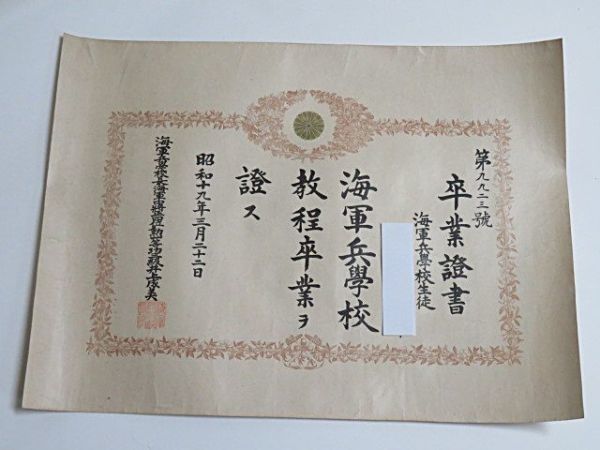 第九九二三號
卒業證書
海軍兵學校生徒
海軍兵學校
教程卒業ヲ
證ス
昭和十九年三月二十二日
海軍兵學校長海軍中將從四位勳一等功三級井上成美